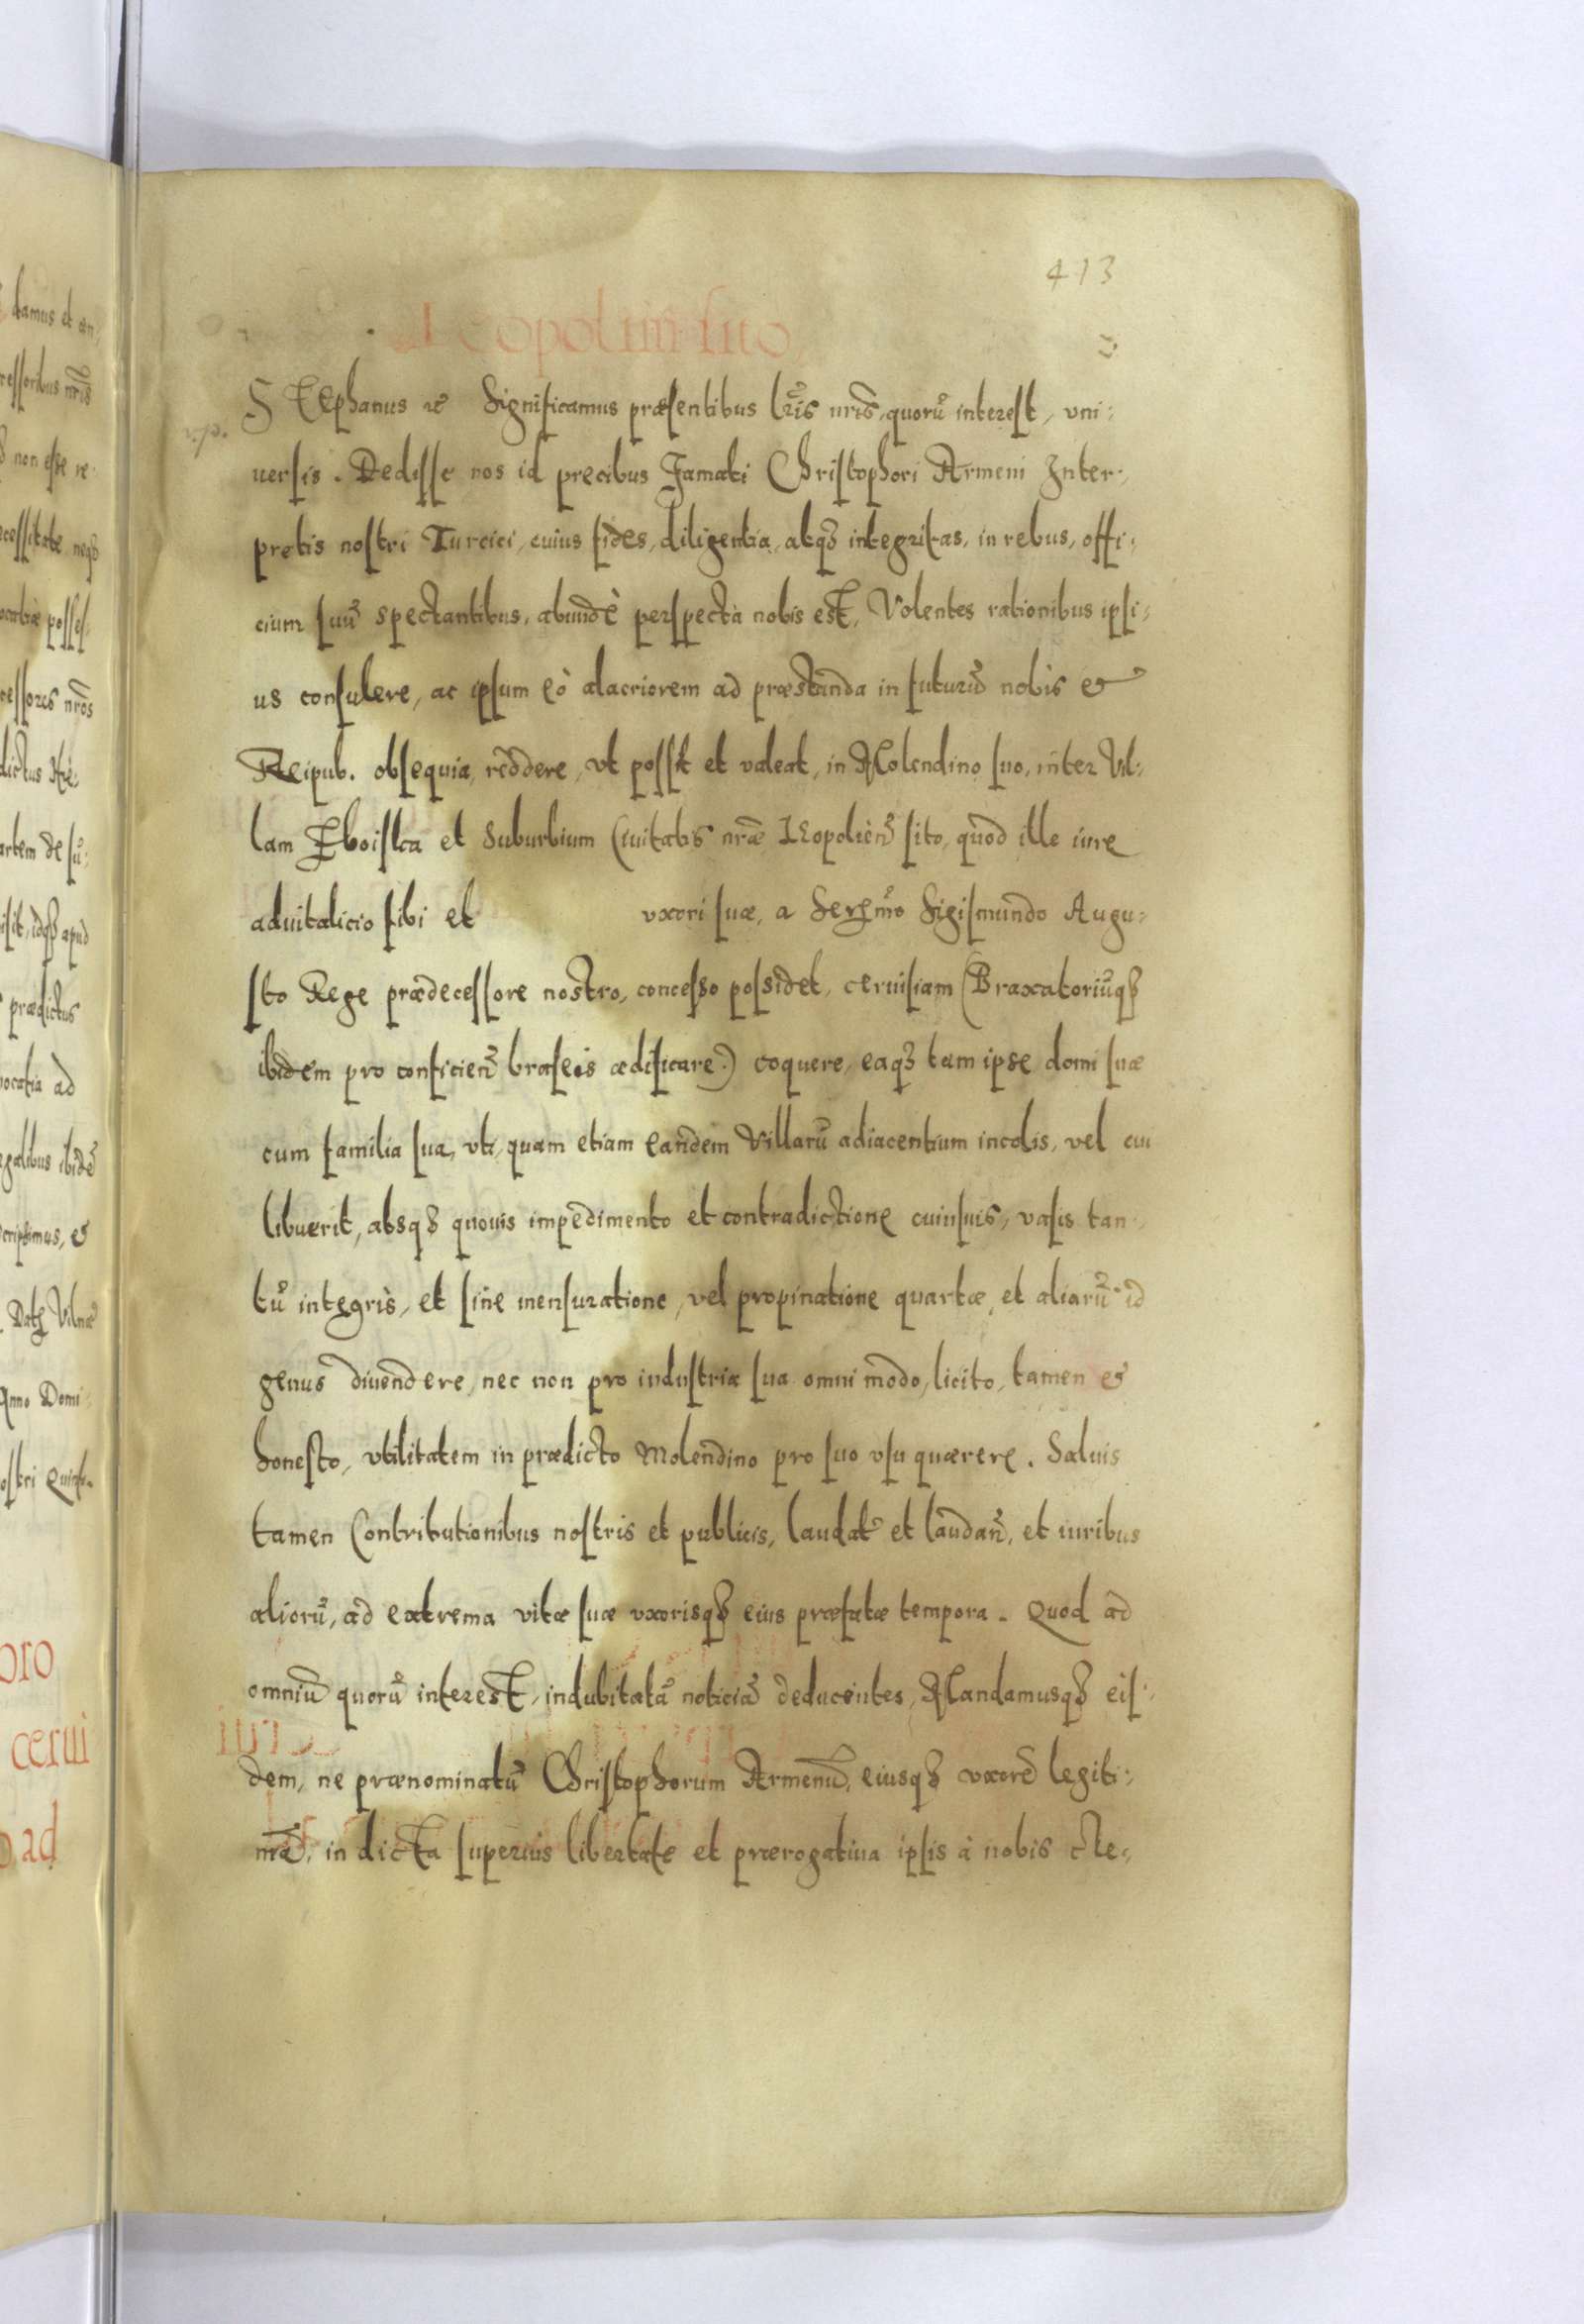 413
Leopolim sito
v.p.
STEphanus &c Significamus præsentibus lr̃is nr̃is, quorũ interest, vni:
uersis. Dedisse nos id precibus Famati Christophori Armeni Inter:
pretis nostri Turcici, cuius fides, diligentia, atq3 integritas, in rebus, offi:
cium suũ spectantibus, abundè perspecta nobis est, Volentes rationibus ipsi:
us consulere, ac ipsum eò alacriorem ad præstanda in futurũ nobis et
Reipub. obsequia, reddere, vt possit et valeat, in Molendino suo, inter Vil:
lam et Suburbium Ciuitatis nr̃æ Leopolieñ sito, quod ille iure
aduitalicio sibi et uxori suæ, a Serẽmo Sigismundo Augu:
sto Rege prædecessore nostro, concesso possidet, ceruisiam (Braxatoriũq3
ibidem pro conficieñ braseis ædificare) coquere, eaq3 tam ipse domi suæ
cum familia sua, vti, quam etiam eandem Villarũ adiacentium incolis, vel cui
libuerit, absq3 quouis impedimento et contradictione cuiusuis, vasis tan:
tũ integris, et sine mensuratione, vel propinatione quartæ, et aliarũ id
genus diuendere, nec non pro industria sua omni modo, licito, tamen et
honesto, vtilitatem in prædicto Molendino pro suo vsu quærere. Saluis
tamen Contributionibus nostris et publicis, laudat̃ et laudañ, et iuribus
aliorũ, ad extrema vitæ suæ vxorisq3 eius præfatæ tempora. Quod ad
omniũ quorũ interest, indubitatã noticiã deducentes, Mandamusq3 eis:
dem, ne prænominatũ Christophorum Armenũ, eiusq3 vxorẽ legiti:
mã, in dicta superius libertate et prærogatiua ipsis à nobis cle: